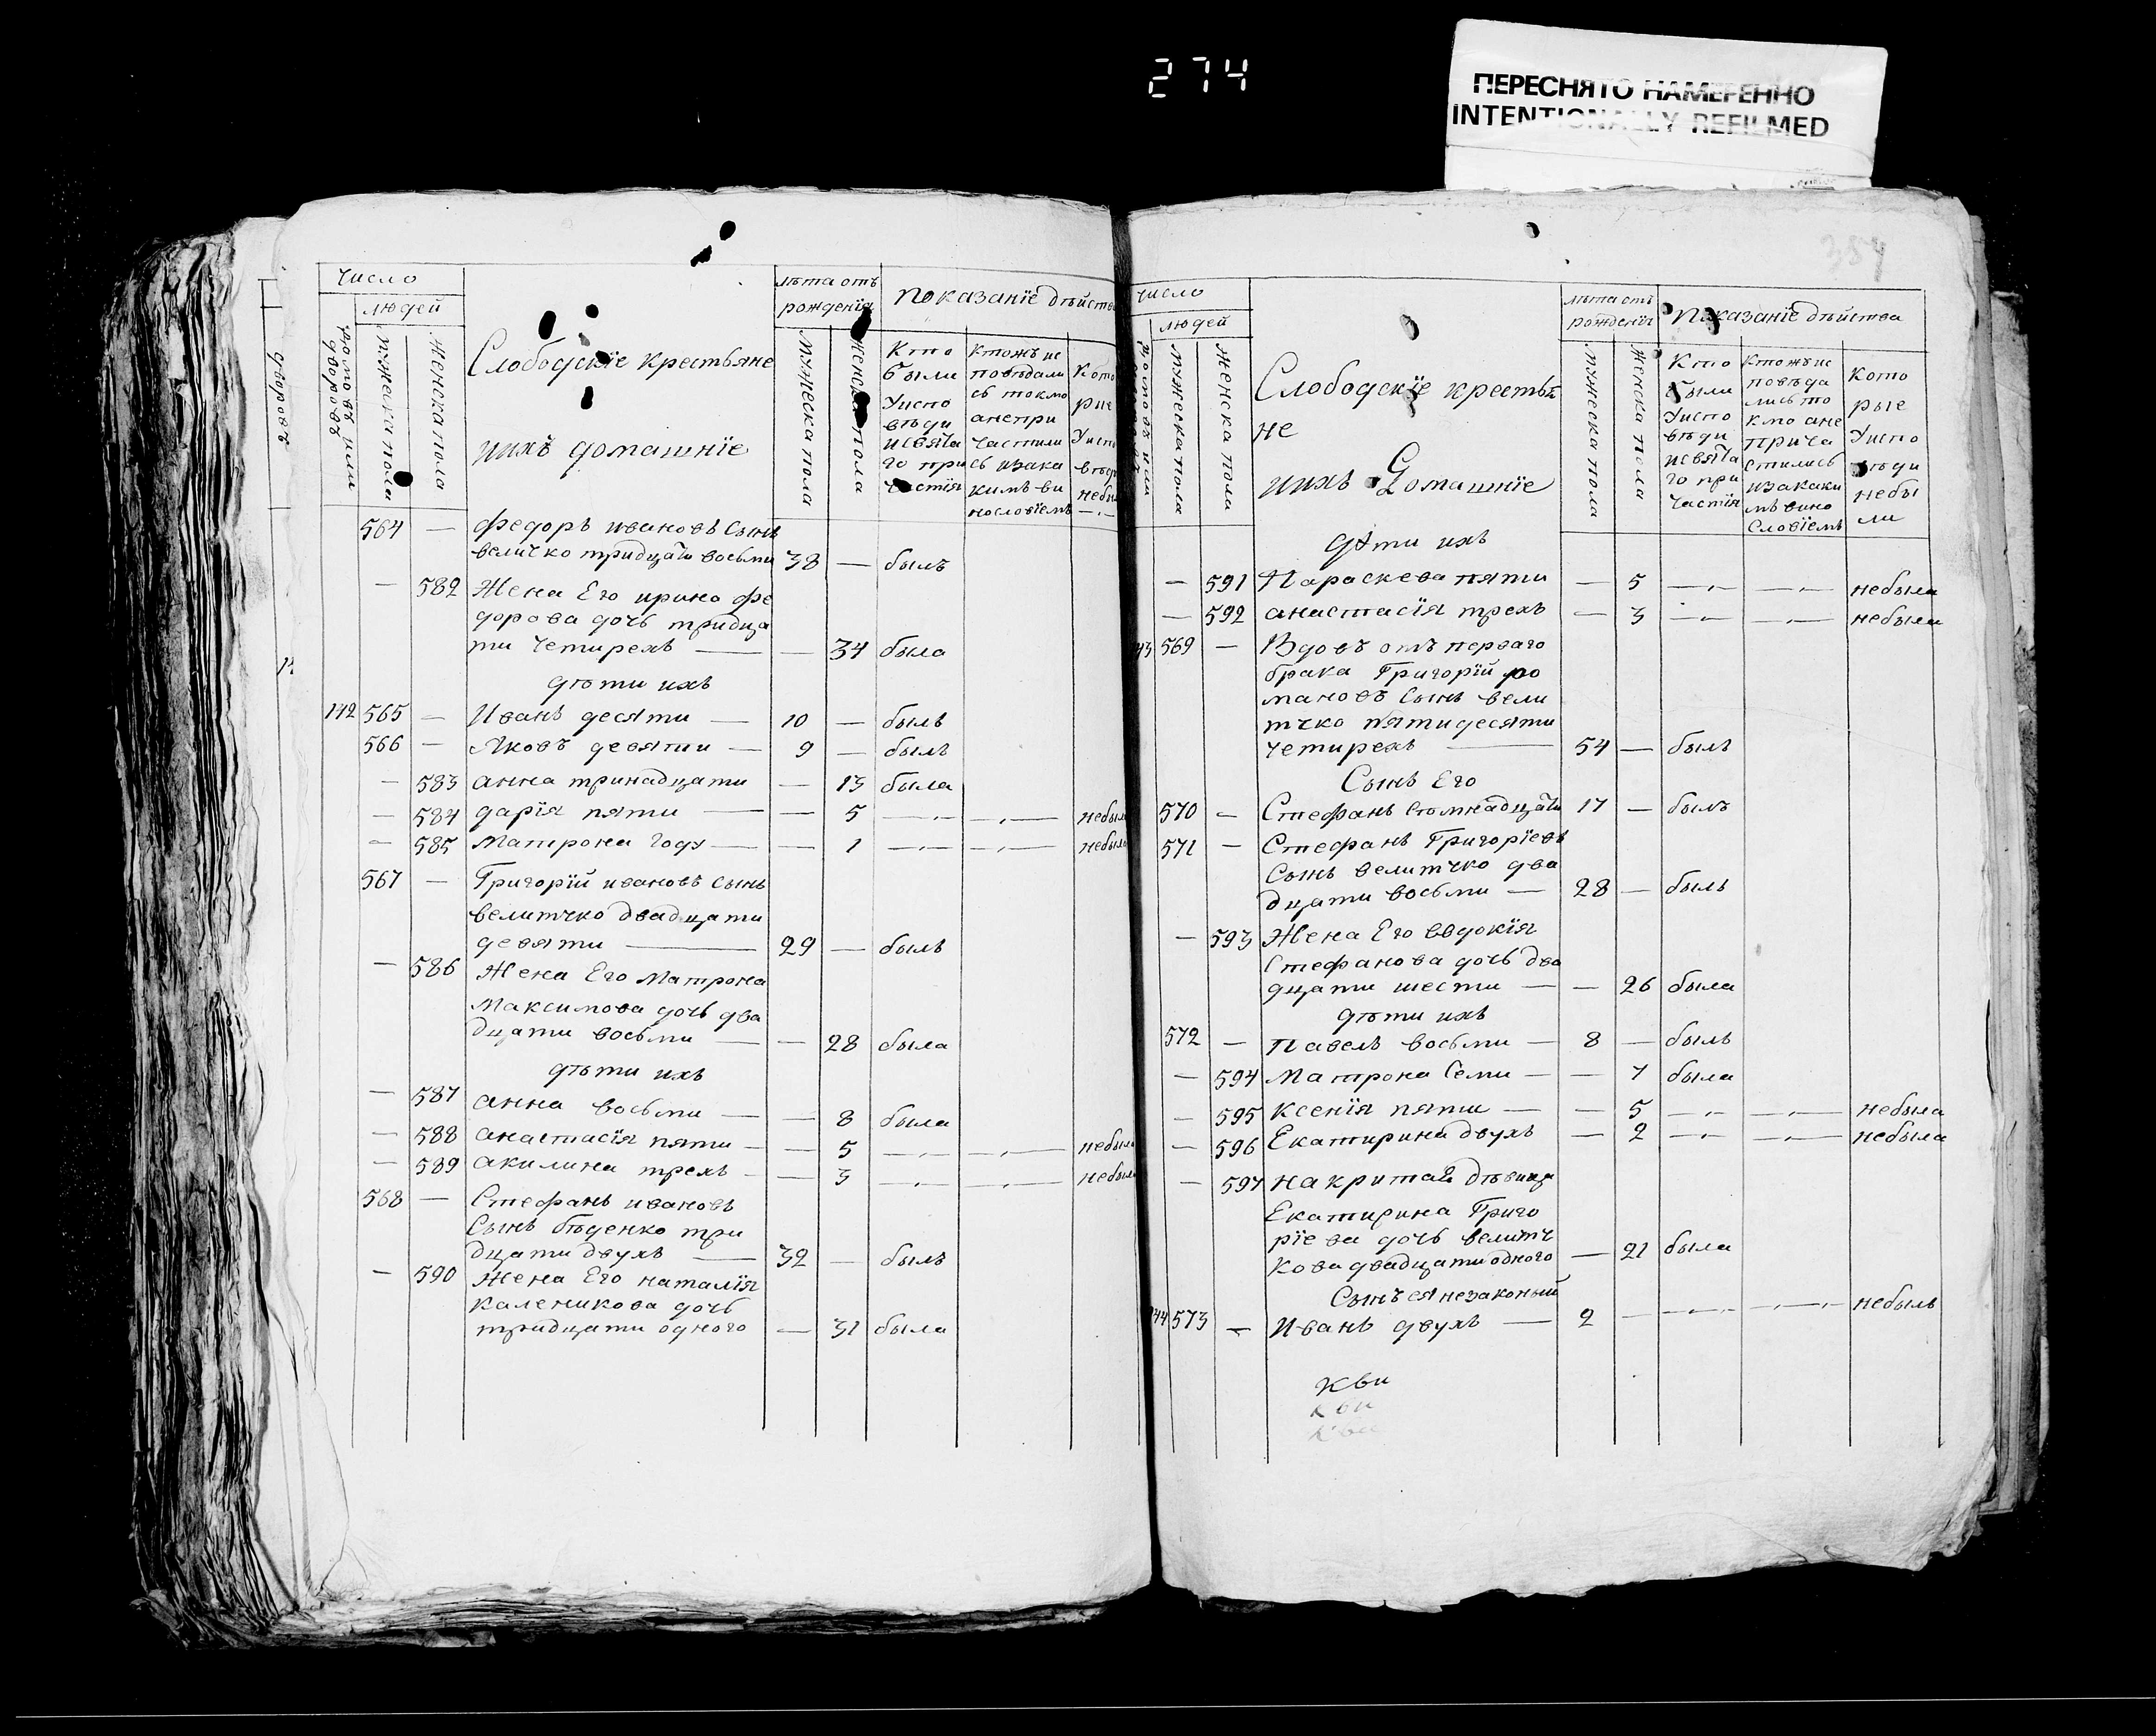 274
ПЕРЕСНЯТО НАМЕРЕННО
INTENTIONALLY REFILMED
число
людей
домовъ или дворовъ
мужеска пола
женска пола
Слободскїе крестьяне
ихъ домашнїе
лѣта отъ рожденїя
мужеска пола
женска пола
показанїе дѣйства
кто были у исповѣди и свята го при частїя
ктожъ исповѣдались токмо а непричастились и за кимъ винословїемъ
564 — федоръ ивановъ сынъ
величко тридцати восьми 38 — былъ
— 582 Жена Его ирина фе
дорова дочь тридца
ти четирехъ — — 34 была
дѣти ихъ
142 565 — Иванъ десяти — 10 — былъ
566 — Яковъ девяти — 9 — былъ
— 583 анна тринадцати — 13 была
— 584 дарїя пяти — — 5 — —
— 585 Матрона году — — 1 — —
567 — Григорїй ивановъ сынъ
велитчко двадцати
девяти — 29 — былъ
— 586 Жена Его Матрона
Максимова дочь два
дцати восьми — — 28 была
дѣти ихъ
— 587 анна восьми — — 8 была
— 588 анастасїя пяти — — 5 — —
— 589 акилина трехъ — — 3 — —
568 — Стефанъ ивановъ
сынъ бѣденко три
дцати двухъ — 32 — былъ
— 590 Жена Его наталїя
каленикова дочь
тридцати одного — 31 была
число
людей
мужеска пола
женска пола
Слободскїе крестья
не
ихъ Домашнїе
лѣта отъ рожденїя
мужеска пола
женска пола
показанїе дѣйства
кто были у исповѣди и свята го при частїя
ктожъ исповѣдались токмо а непричастились и за каки мъ винословїемъ
которые у исповѣди небыли
дѣти ихъ
— 591 Параскева пяти — 5 — — небыла
— 592 анастасїя трехъ — 3 — — небыла
569 — Вдовъ отъ перваго
брака Григорїй ро
мановъ сынъ вели
тчко пятидесяти
четирехъ — 54 — былъ
Сынъ Его
570 — Стефанъ семнадцати 17 — былъ
571 — Стефанъ Григорїевъ
сынъ велитчко два
дцати восьми — 28 — былъ
— 593 Жена Его евдокїя
Стефанова дочь два
дцати шести — — 26 была
дѣти ихъ
572 — павелъ восьми — 8 — былъ
— 594 Матрона семи — — 7 была
— 595 ксенїя пяти — — 5 — — небыла
— 596 Екатирина двухъ — 2 — — небыла
— 597 накритая дѣвица
Екатирина Григо
рїева дочь велитч
кова двадцати одного — 21 была
Сынъ ея незаконый
573 — иванъ двухъ — 2 — — — небылъ